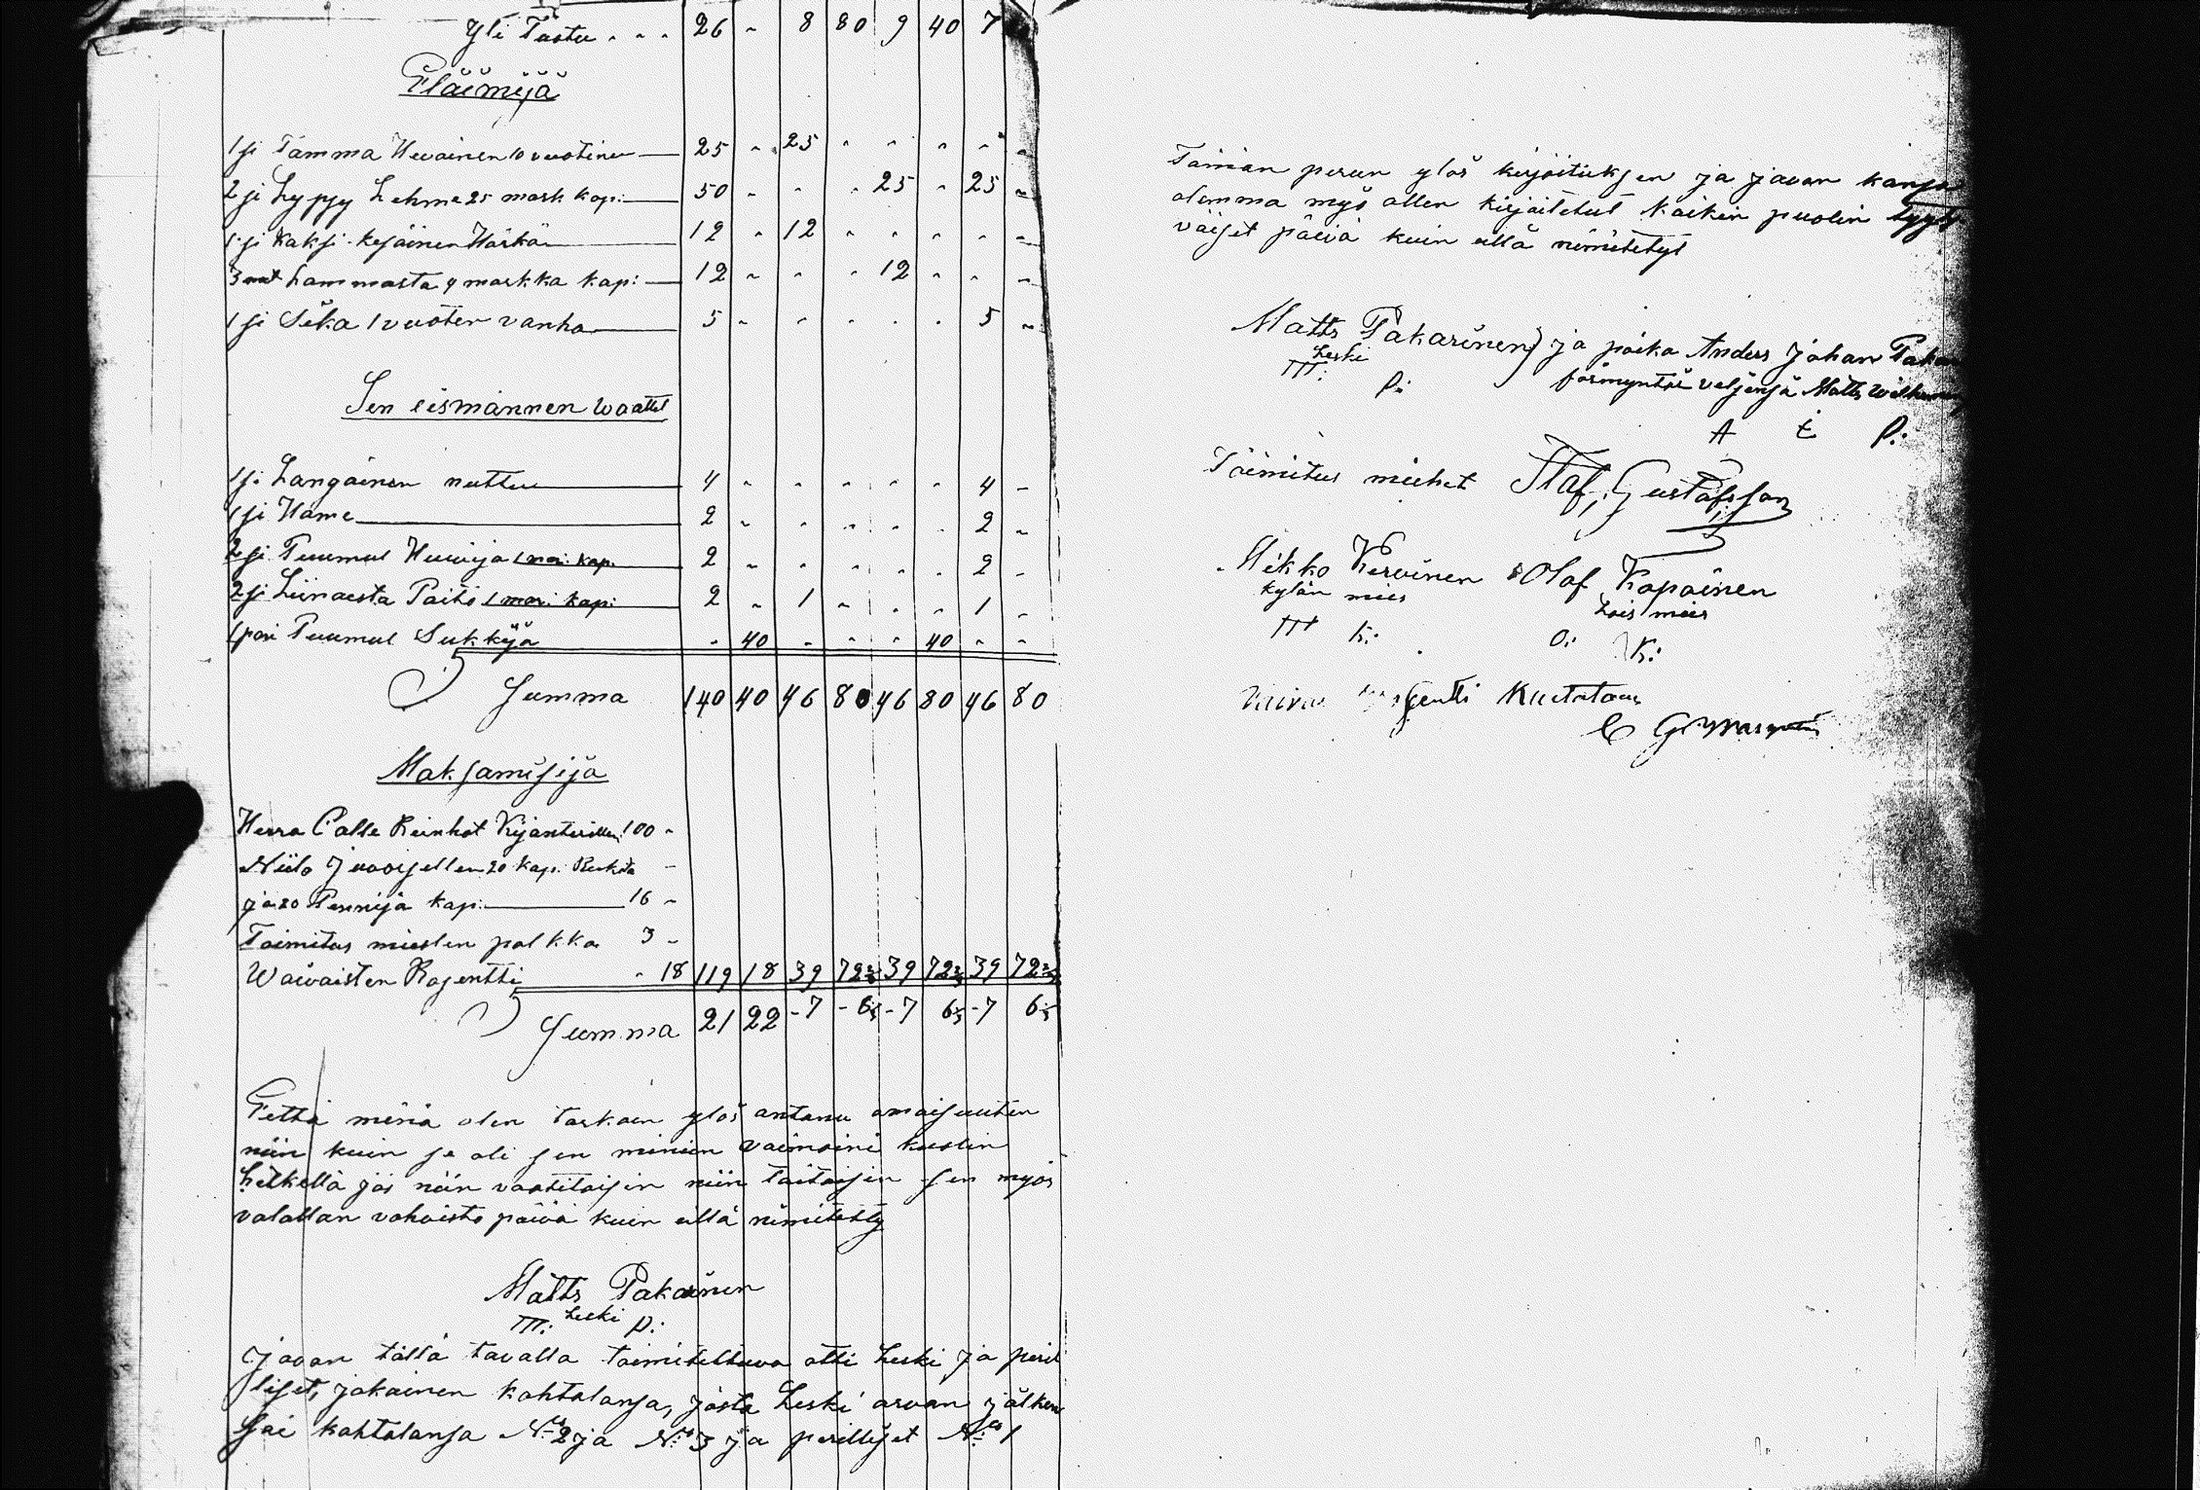 Yli Tastu . . . 26 - 8 80 9 40 7
Eläimijä
1 si Tämma Hevoinen 10 vuotinen 25 - 25 - - - - -
2 si Lypsy Lehme 25 mark kap: 50 - - - 25 - 25 -
1 si Kaksi kesäinen Härkä 12 - 12 - - - - -
3 met Lammasta 4 markka kap: 12 - - - 12 - - -
1 si Sika 1 vuoten vanha 5 - - - - - 5 -
Sen eismännen Waattet
1 si Langäinen nuttu 4 - - - - - 4 -
1 si Häme 2 - - - - - 2 -
2 si Puumul Huivija 1 mar: kap. 2 - - - - - 2 -
2 si Liinaesta Paito 1 mar: kap: 2 - 1 - - - 1 -
1 pari Puumul Sukkija - 40 - - - 40 - -
Summa 140 40 46 80 46 80 46 80
Maksamisija
Herra Calle Reinhot 100 -
Niilo 20 kap. -
ja 20 Pennija kap: 16 -
Toimitus miesten palkka 3 -
Waivaisten Rosentti - 18 119 18 39 72 2/3 39 72 2/3 39 72 2/3
Summa 21 22 - 7 - 6 - 7 6 - 7 6
Että minä olen tarkaan ylös antanu omaisuuten
niin kuin se oli sen miniun vaimoini kuolin
hetkellä jos niin vaatitaisin niin taitaisin sen myös
valallan vahvista päivä kuin ellä nimitetty
Matts Pakarinen
Leski
P:
Jaon tällä tavalla toimiteltuva otti Leski ja peril
liset, jokainen kohtalansa, josta Leski arvan jälken
sai kohtalansa No 2 ja No 3 ja perilliset No 1
Tämän perun ylös kirjoituksen ja jaon kansa
olemma myö ollen kirjoitetut kaikin puolin tyyty
väiset päivä kuin ellä nimitetyt
Matts Pakarinen ja poika Anders Johan
Leski
P: förmyntär veljensä Matts
A P:
Toimitus miehet Staf, Gustafsson
Mikko Kervinen Olof Kopoinen
kylän mies Lois mies
K: O: K: